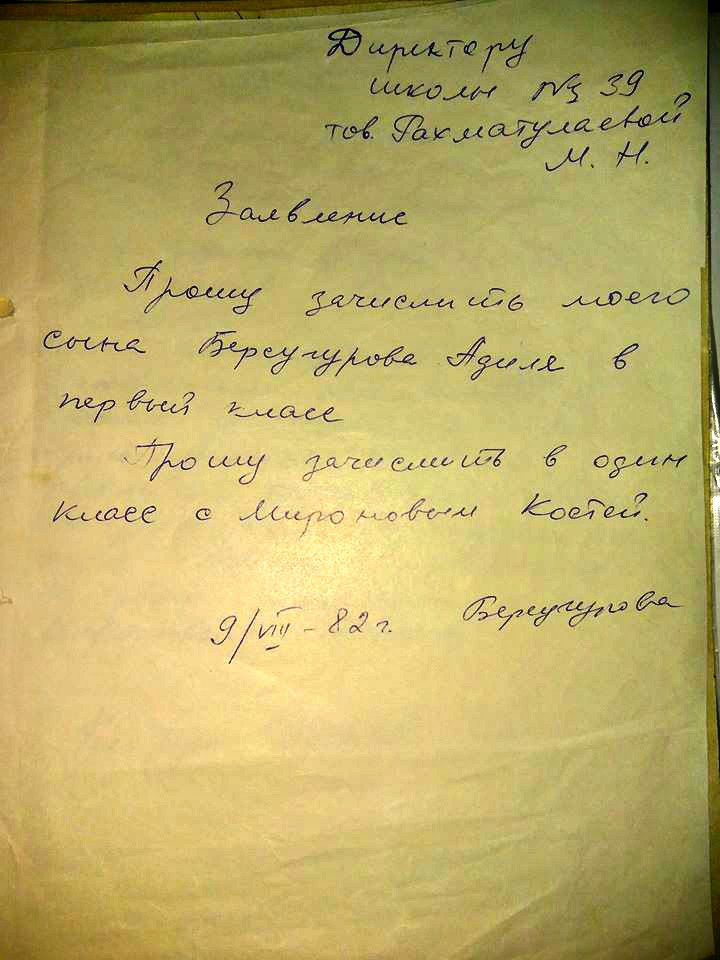 Директору
школы № 39
тов. Рахматулаевой
М. Н.
Заявление
Прошу зачислить моего
сына Берсугурова Адиля в
первый класс
Прошу зачислить в один
класс с Мироновым Костей.
9/VIII - 82 г. Берсугурова